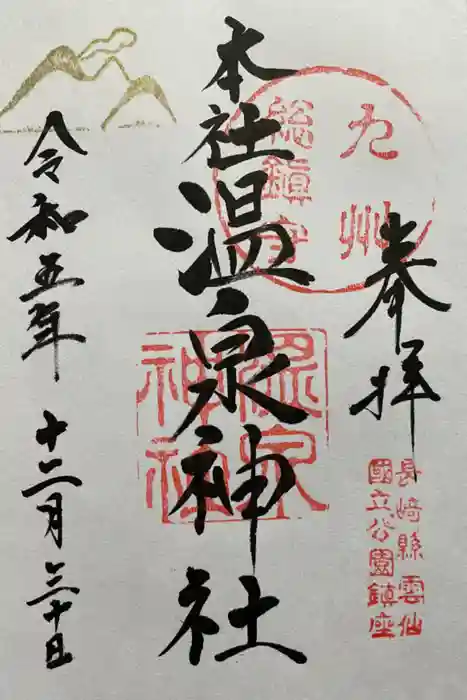 奉拝
九州
総鎮守
長崎縣雲仙
國立公園鎮座
本社温泉神社
温泉
神社
令和五年十二月三十日